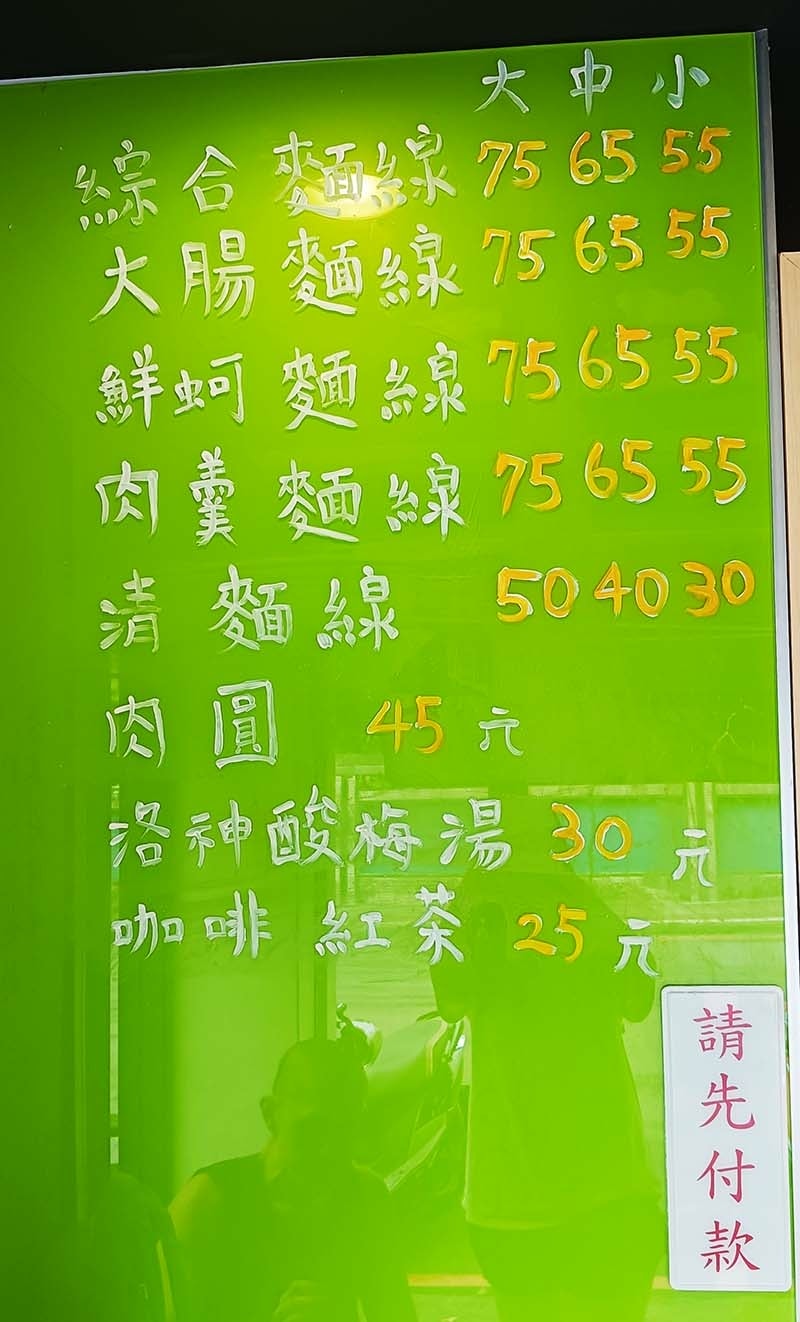 大 中 小
綜合麵線 75 65 55
大腸麵線 75 65 55
鮮蚵麵線 75 65 55
肉羹麵線 75 65 55
清麵線 50 40 30
肉圓 45元
洛神酸梅湯 30元
咖啡 紅茶 25元
請先付款